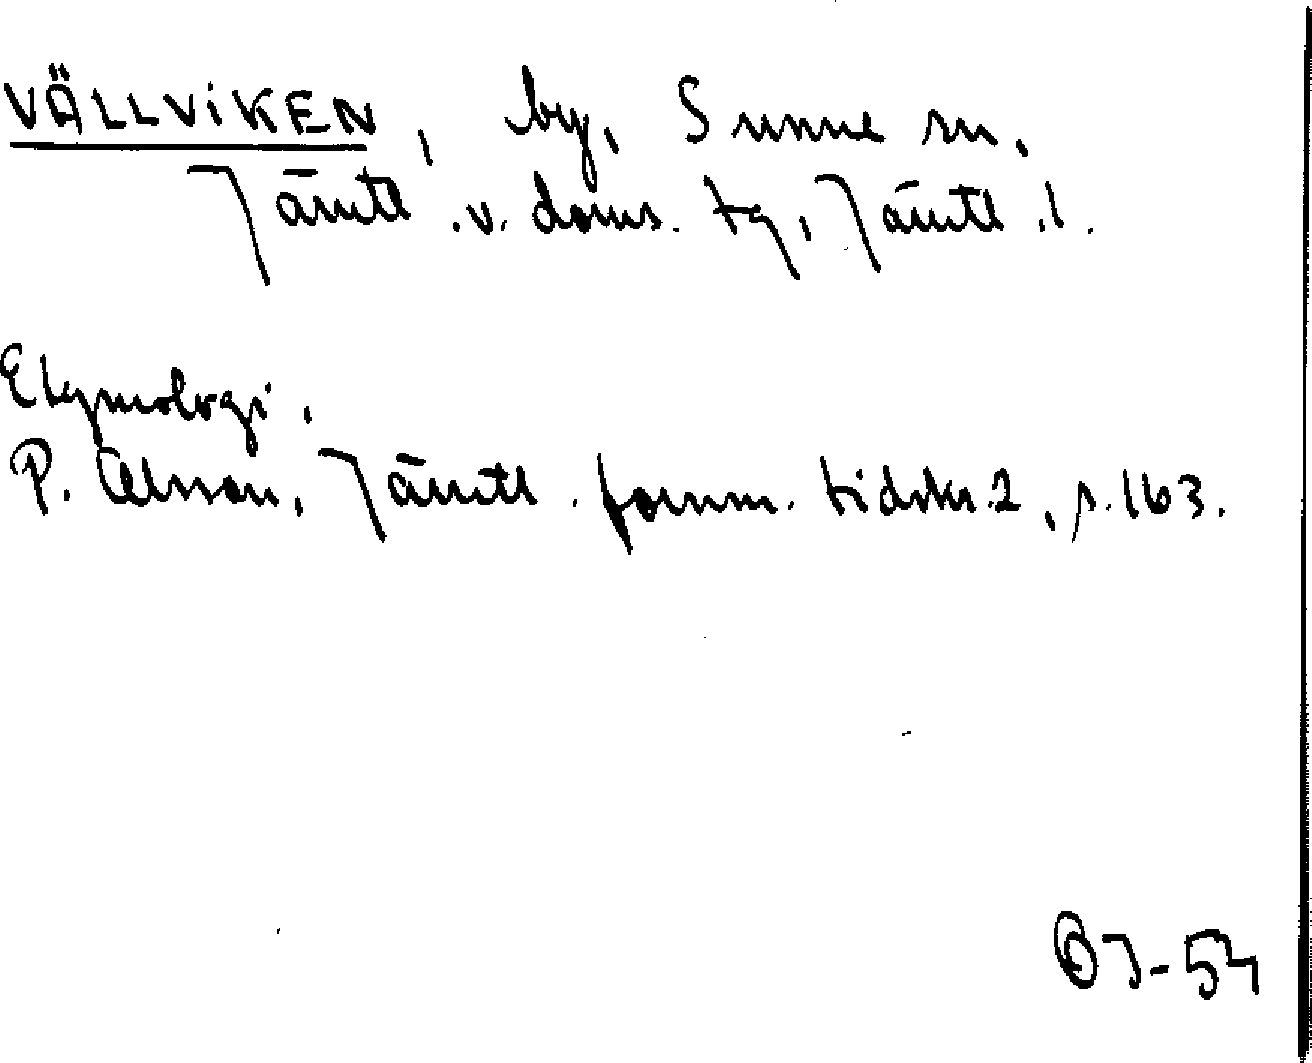 VÄLLVIKEN, by, Sunne sn.
Jämtl. v. doms. tg, Jämtl. l.
Etymologi.
P. Olsson, Jämtl. fornm. tidskr. 2, s. 163.
OJ-54